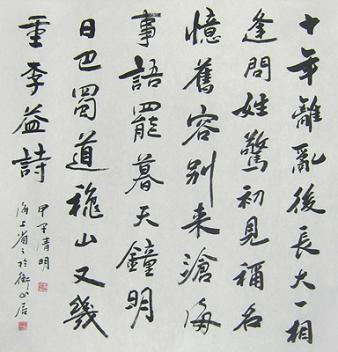 十年離亂後長大一相
逢問姓驚初見稱名
憶舊容別來滄海
事語罷暮天鐘明
日巴蜀道穐山又幾
重李益詩
甲午清明
海上省〻於衡山居